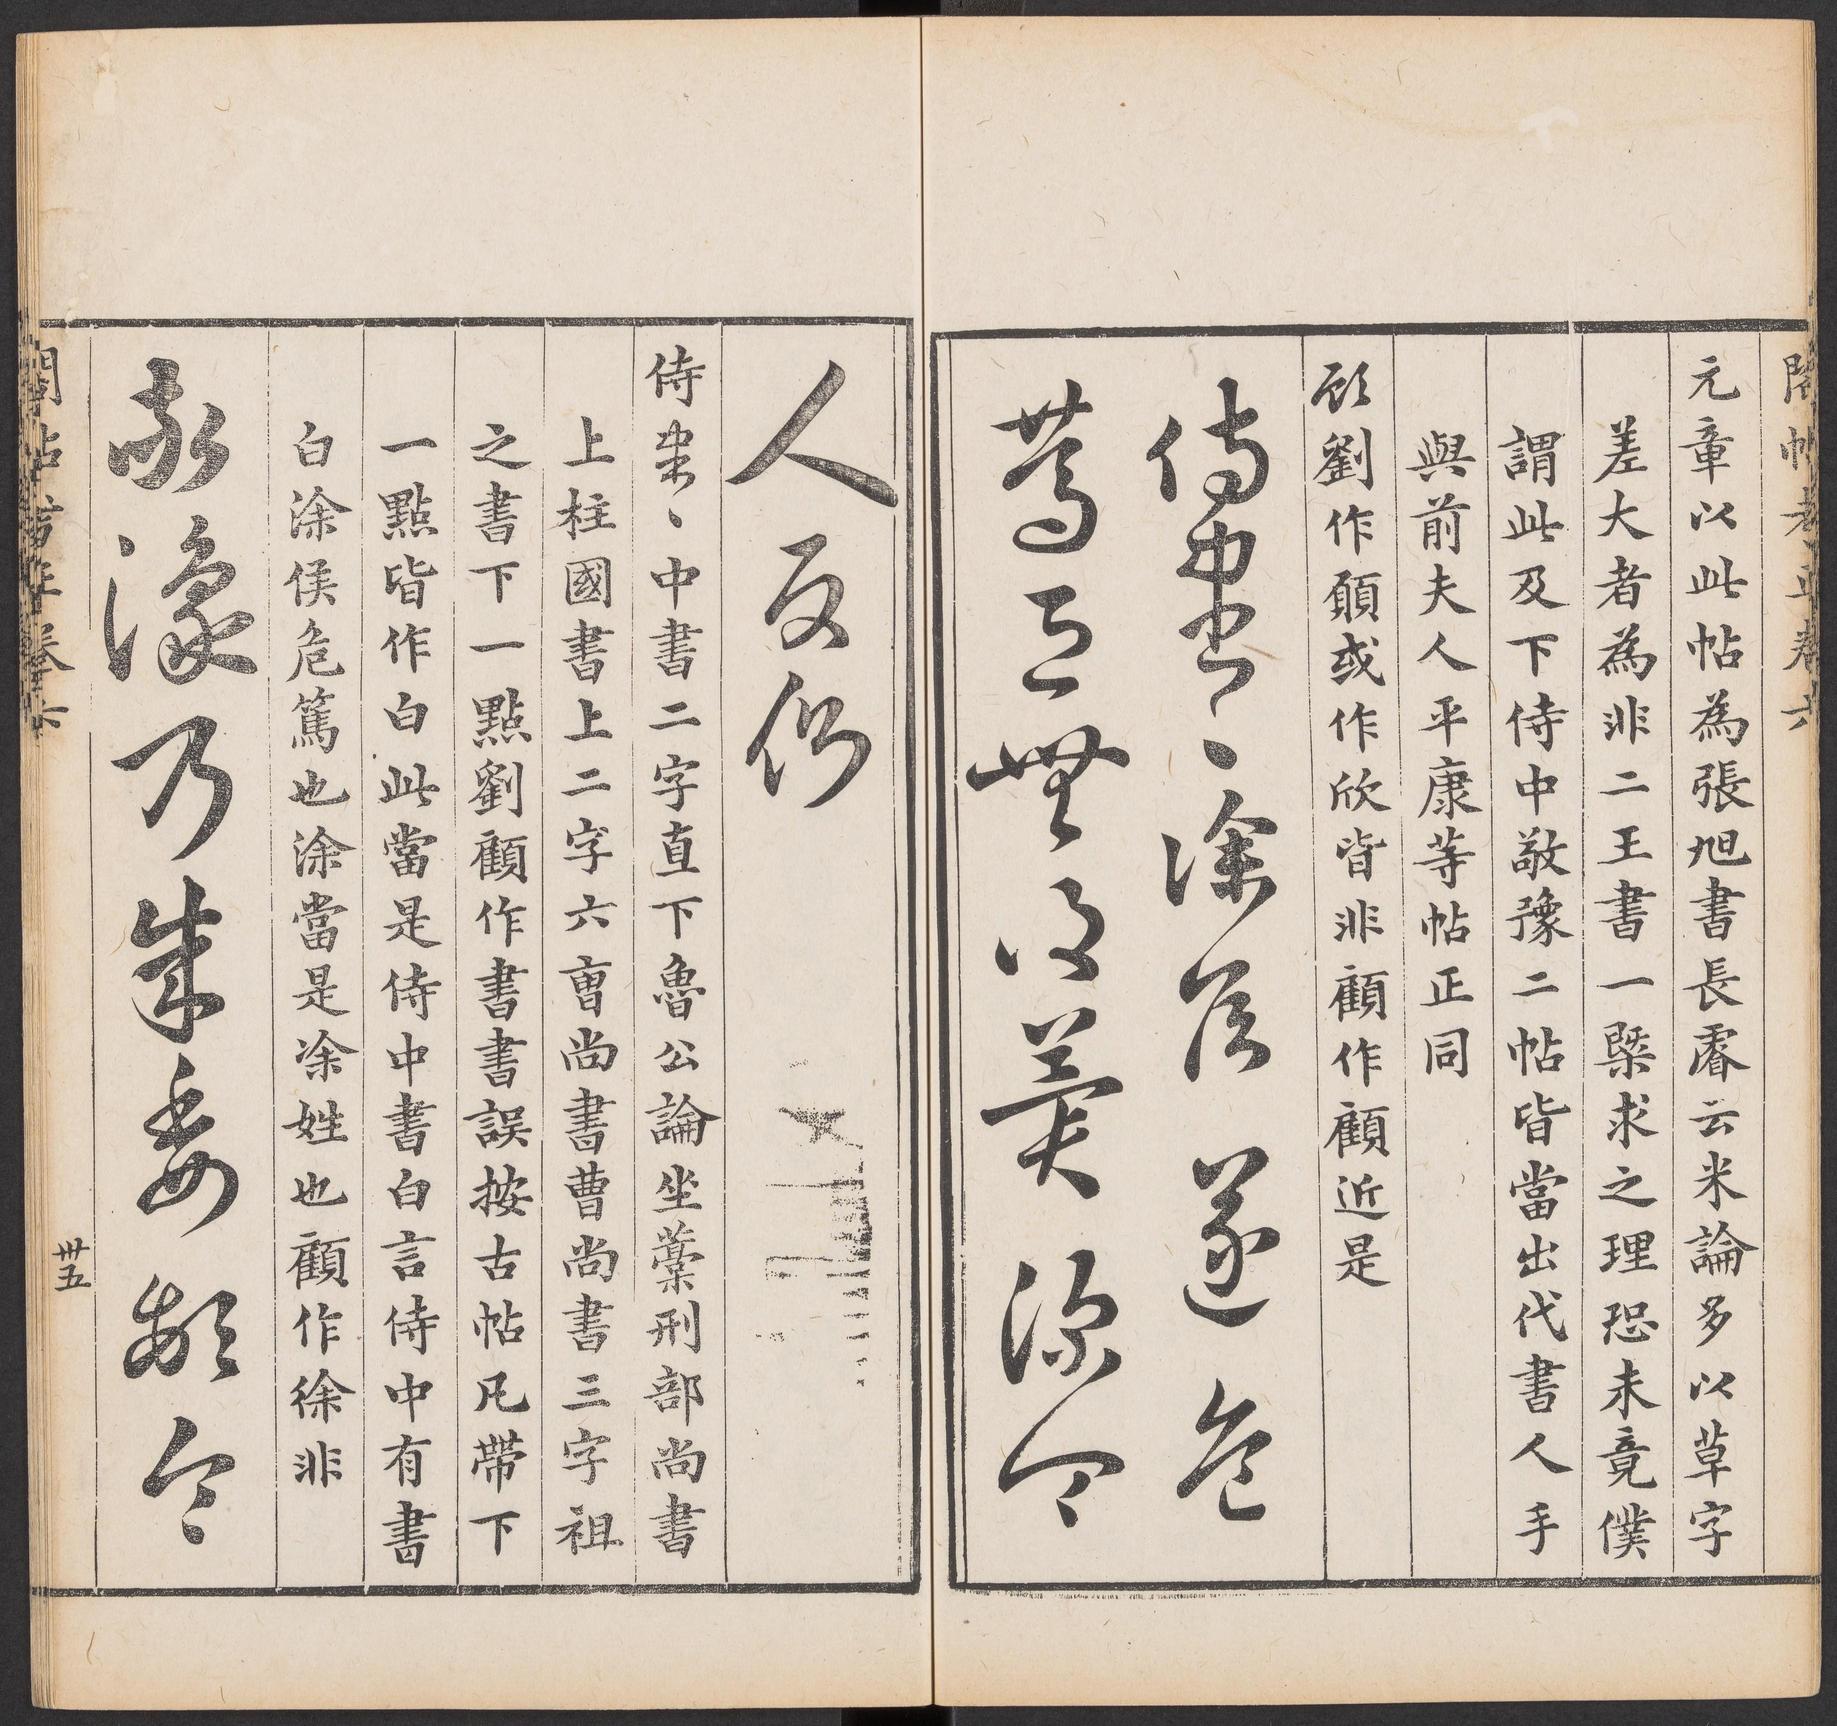 元章以此帖為張旭書長睿云米論多以草字
差大者為非二王書一槩求之理恐未竟僕
謂此及下侍中敬豫二帖皆當出代書人手
與前夫人平康等帖正同
劉作願或作欣皆非顧作顧近是
侍中書、涂侯遂危
篤恐無復冀深令
人反側
侍 、中書二字直下魯公論坐藁刑部尚書
上柱國書上二字六曺尚書曹尚書三字祖
之書下一點劉顧作書書誤按古帖凡帶下
一點皆作白此當是侍中書白言侍中有書
白涂侯危篤也涂當是涂姓也顧作徐非
敬豫乃成委頓令
閣帖考正卷六
卅五